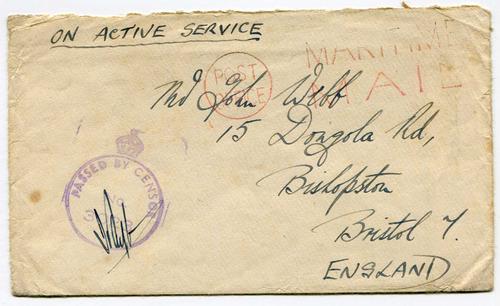 ON ACTIVE SERVICE
POST OFFICE
MARITIME
MAIL
Md John Webb
15 Dongola Rd,
Bishopston
Bristol 7.
ENGLAND
PASSED BY CENSOR
No